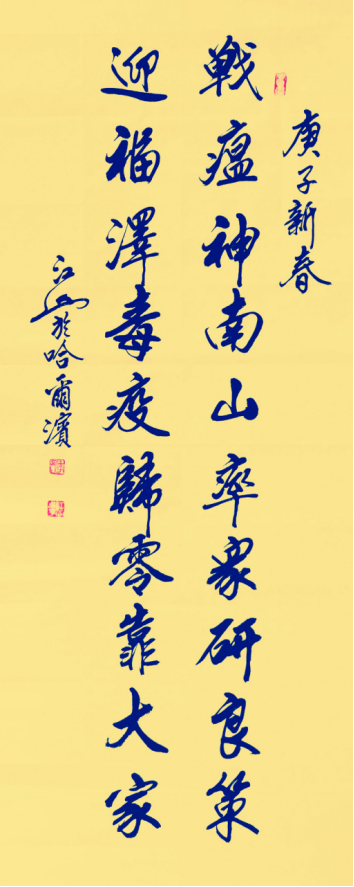 庚子新春
戰瘟神南山率眾研良策
迎福澤毒疫歸零靠大家
江山於哈爾濱